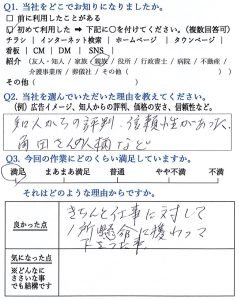 Q1. 当社をどこでお知りになりましたか。
□ 前に利用したことがある
☑ 初めて利用した ➡ 下記に○を付けてください。(複数回答可)
チラシ | インターネット検索 | ホームページ | タウンページ
看板 | CM | DM | SNS
紹介 (友人・知人 / 家族 / 親族 / 役所 / 行政書士 / 病院 / 不動産
/ 介護事業所 / 葬儀社 / その他 ( ))
その他 ( )
Q2. 当社を選んでいただいた理由を教えてください。
(例) 広告イメージ、知人からの評判、価格の安さ、信頼性など。
知人からの評判、信頼性があった、
角田さんの
など
Q3. 今回の作業にどのくらい満足していますか。
満足 まあまあ満足 普通 やや不満 不満
それはどのような理由からですか。
良かった点
きちんと仕事に対して
一所懸命に
気になった点
※どんなに
ささいな事
でも結構です